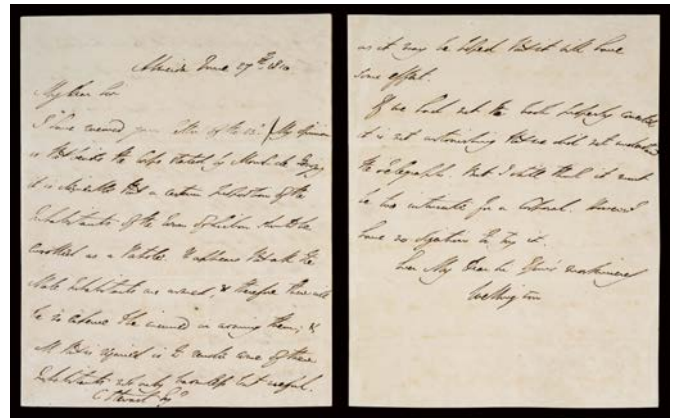 Almeida June 27th 1810
My Dear Sir
I have received your letter of the 23d. My opinion
is that besides the Corps stated by
it is desirable that a certain proportion of the
Inhabitants of the Town of Lisbon should be
enrolled as a It appears that all the
Male Inhabitants are armed, & therefore there will
be no expence incurred in arming them; &
all that is required is to render some of these
Inhabitants not only harmless but useful.
C Stuart Esqr
as it may be hoped that it will have
some effect.
If we had not the book properly corrected
it is not astonishing that we did not understand
the telegraph. But I still think it must
be too intricate for a However I
have no objection to try it.
Ever My Dear Sir Yours most sincerely
Wellington